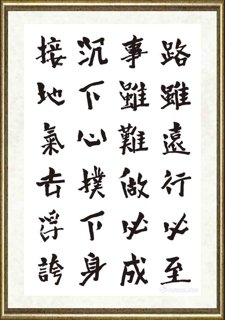 路雖遠行必至
事雖難做必成
沉下心撲下身
接地氣去浮誇